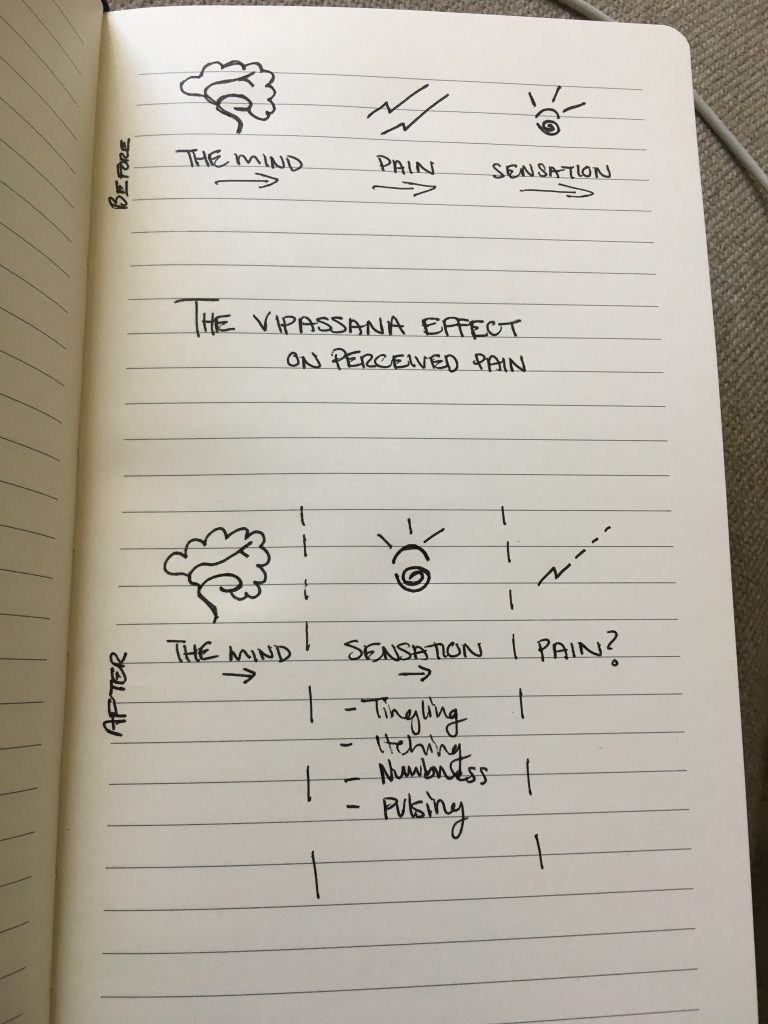 BEFORE
THE MIND PAIN SENSATION
THE VIPASSANA EFFECT
ON PERCEIVED PAIN
AFTER
THE MIND SENSATION PAIN?
- Tingling
- Itching
- Numbness
- Pulsing